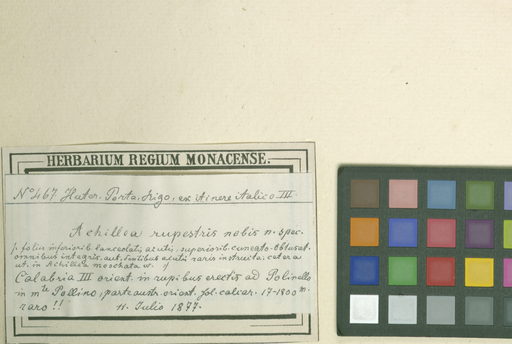 HERBARIUM REGIUM MONACENSE.
No 467 Huter, Porta, Rigo, ex itinere italico III.
Achillea rupestris nobis n. spec.
foliis inferiorib. lanceolatis acutis, superiorib. cuneato-obtusat.
omnibus integris, aut dentibus acutis raris instructa. cetera
ut in Achillea moschata W.
Calabria III orient. in rupibus erectis ad Polinello
in mte Pollino, parte austr. orient. sol. calcar. 17-1800 m.
raro !! 11. Julio 1877.